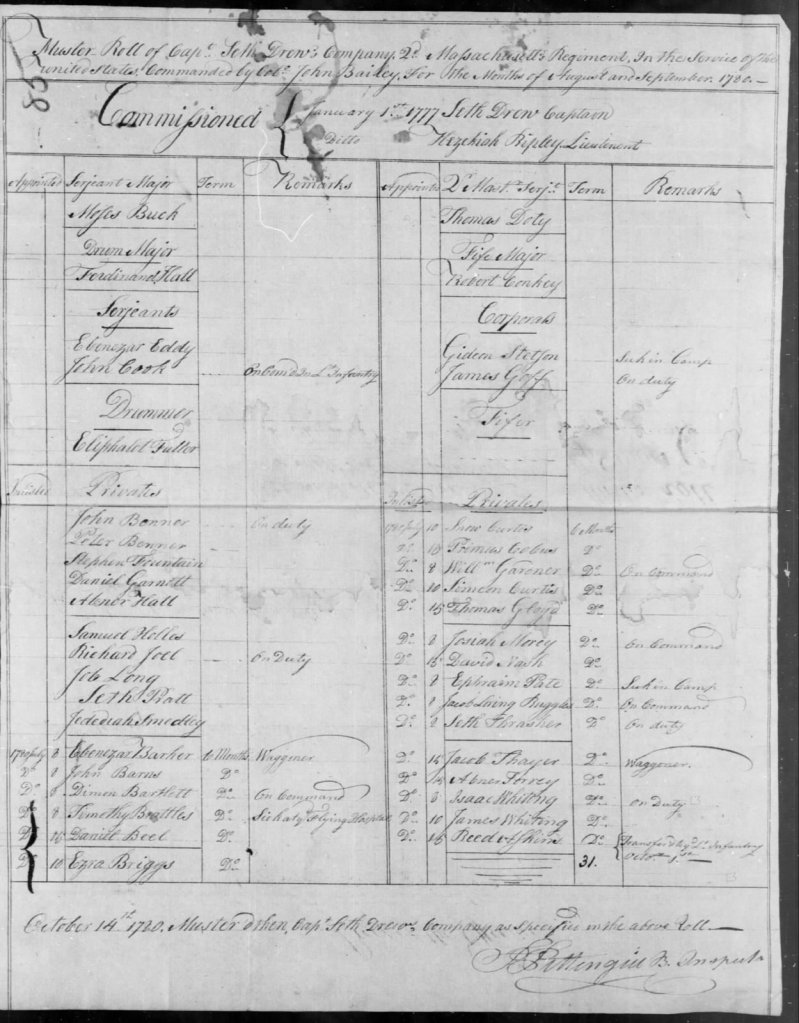 85
Muster Roll of Capt. Seth Drew's Company, 2d. Massachusetts Regiment, In the Service of the
United States, Commanded by Colo. John Bailey, For the Months of August and September 1780.—
Commissioned { January 1st 1777 Seth Drew Captain
Ditto Hezekiah Ripley Lieutenant
Appointed Serjeant Major Term Remarks
Moses Buck
Drum Major
Ferdinand Hall
Serjeants
Ebenezar Eddy
John Cook .... On Comd. In Lt. Infantry
Drummer
Eliphalet Fuller
Inlisted Privates
John Bonner On duty
Peter Bonner
Stephen Fountain
Daniel Garnett
Abner Hall
Samuel Holles
Richard Joel On Duty
Job Long
Seth Pratt
Jedediah Smedley
1780 July 8 Ebenezar Barker 6 Months Waggoner
Do 8 John Barns Do
Do 8 Dimon Bartlett Do On Command
Do 8 Timothy Brattles Do Sick at ye Flying Hospital
Do 16 Daniel Beel Do
Do 10 Ezra Briggs Do
Appointed Qr. Mastr. Serjt. Term Remarks
Thomas Doty
Fife Major
Robert Conkey
Corporals
Gideon Stetson Sick in Camp
James Goff On duty
Fifer
Inlisted Privates
1780 July 10 Snow Curtis 6 Months
Do 15 Primus Cobus Do
Do 8 Willm. Gardner Do On Command
Do 10 Simeon Curtis Do
Do 15 Thomas Gloyd Do
Do 8 Josiah Morey Do On Command
Do 15 David Nash Do
Do 8 Ephraim Pate Do Sick in Camp
Do 8 Jacob Ruggles Do On Command
Do 8 Seth Thrasher Do On duty
Do 15 Jacob Thayer Do Waggoner
Do 15 Abner Torrey Do
Do 8 Isaac Whiting Do On Duty
Do 10 James Whiting Do
Do 15 Reed Do { Transferd to ye Lt. Infantry
31. Octor. 1st
October 14th. 1780. Musterd then, Capt. Seth Drews Company as Specified in the above Roll.—
Pettengill B. Inspectr